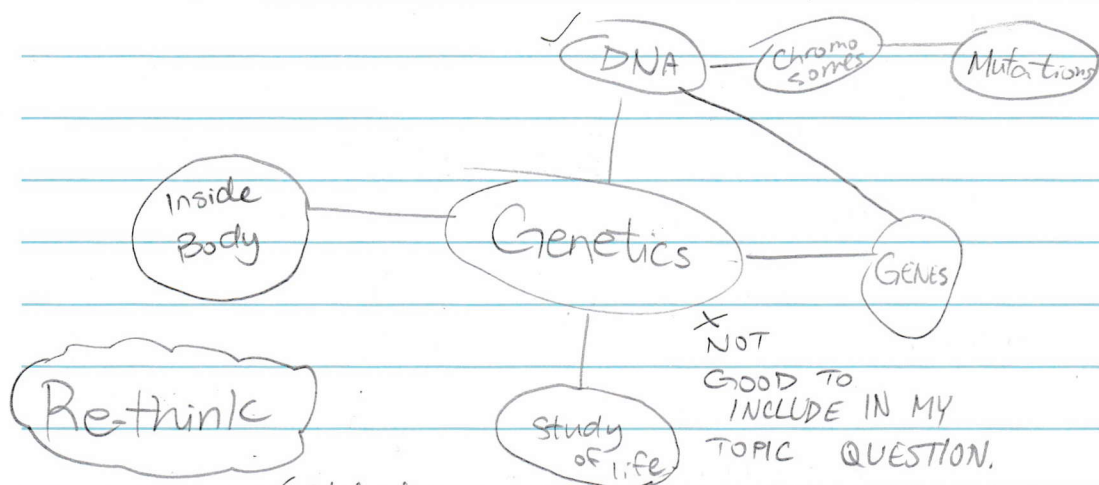 ✓
DNA
Chromo
somes
Mutations
Inside
Body
Genetics
GENES
x
NOT
GOOD TO
INCLUDE IN MY
TOPIC QUESTION.
Re-think
Study
of life